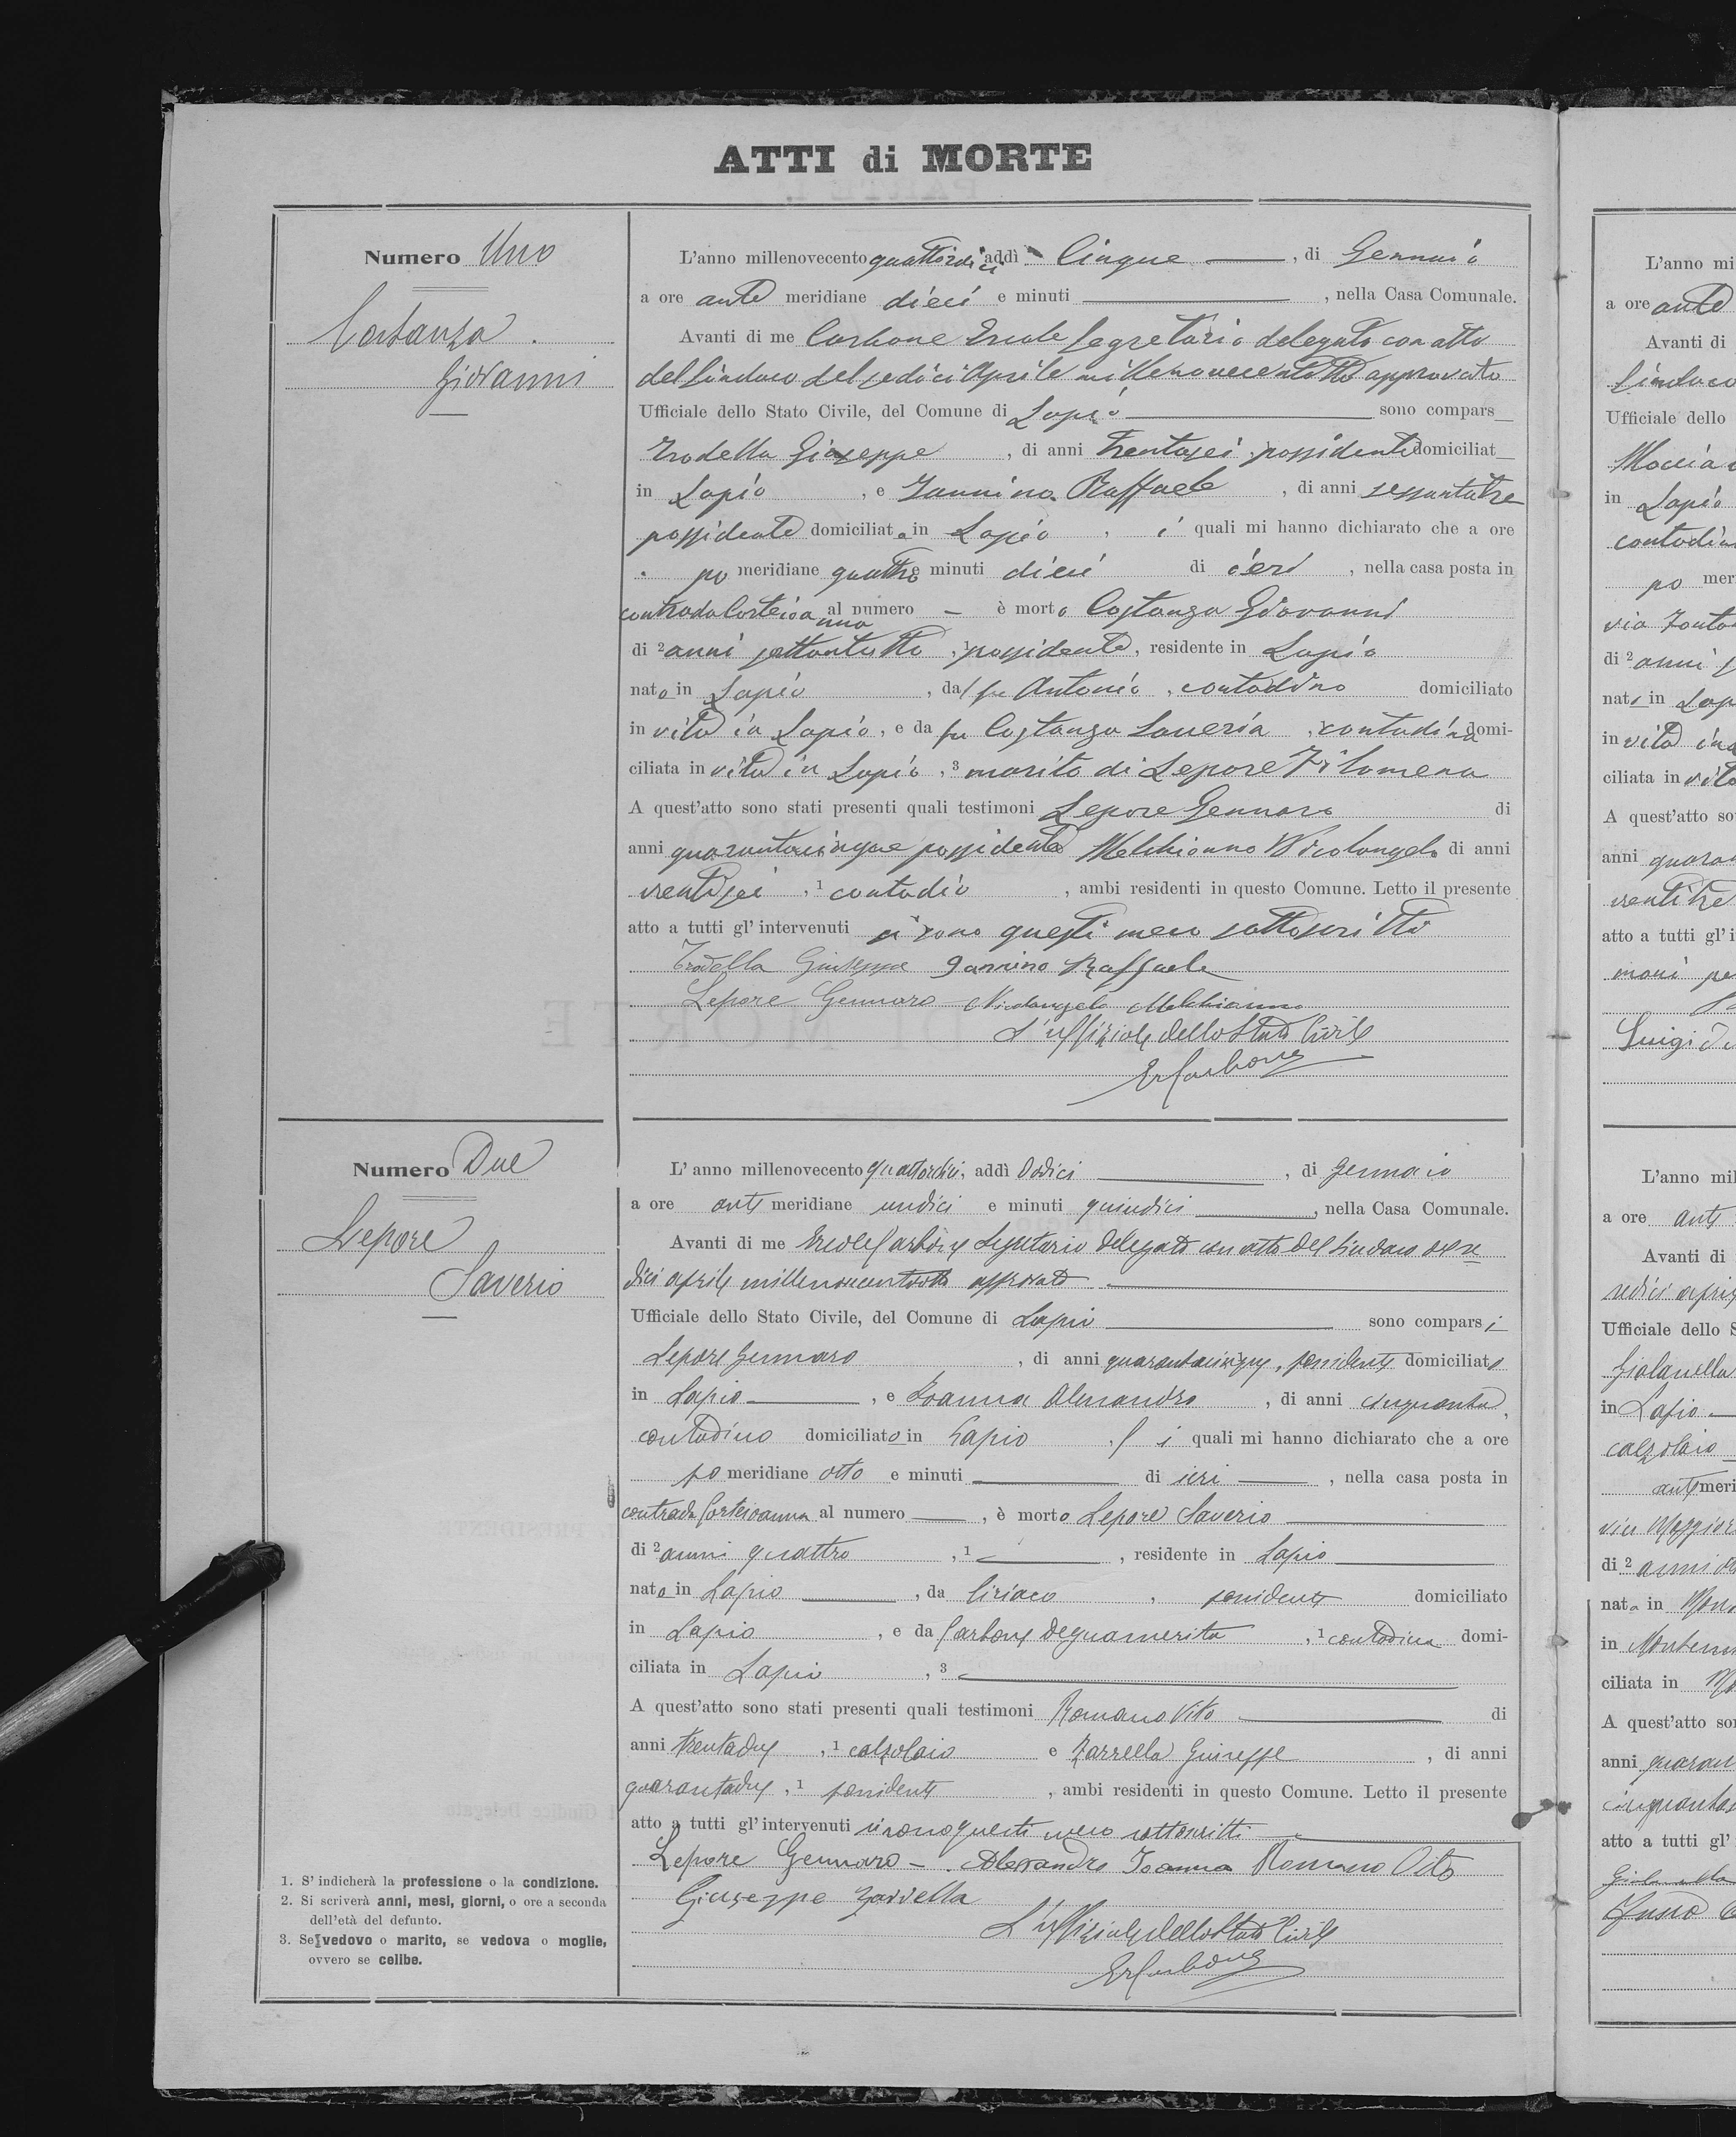 ATTI di MORTE
Numero Uno
Costanza
Giovanni
L'anno millenovecento quattordici addì Cinque, di Gennaio
a ore ante meridiane dieci e minuti, nella Casa Comunale.
Avanti di me Carbone Ercole Segretario delegato con atto
del Sindaco del sedici Aprile millenovecentotto approvato
Ufficiale dello Stato Civile, del Comune di Lapio sono compars
Trodella Giuseppe, di anni trentasei possidente domiciliat
in Lapio, e Iannino Raffaele, di anni sessantatre
possidente domiciliato in Lapio, i quali mi hanno dichiarato che a ore
po meridiane quattro e minuti dieci di ieri, nella casa posta in
contrada Corteioanna al numero - è morto Costanza Giovanni
di 2 anni settantotto, possidente, residente in Lapio
nato in Lapio, da fu Antonio, contadino domiciliato
in vita in Lapio, e da fu Costanza Saveria, contadina domi-
ciliata in vita in Lapio, 3 marito di Lepore Filomena
A quest'atto sono stati presenti quali testimoni Lepore Gennaro di
anni quarantacinque possidente Melchionno Nicolangelo di anni
ventisei, 1 contadio, ambi residenti in questo Comune. Letto il presente
atto a tutti gl'intervenuti si sono questi meco sottoscritti
Trodella Giuseppe Iannino Raffaele
Lepore Gennaro Nicolangelo Melchionno
L'uffiziale dello Stato Civile
ErCarbone
Numero Due
Lepore
Saverio
L'anno millenovecento quattordici, addì Dodici, di Gennaio
a ore ante meridiane undici e minuti quindici, nella Casa Comunale.
Avanti di me Ercole Carbone Segretario delegato con atto del Sindaco del se
dici aprile millenovecentotto approvato
Ufficiale dello Stato Civile, del Comune di Lapio sono comparsi
Lepore Gennaro, di anni quarantacinque, possidente domiciliato
in Lapio, e Ioanna Alessandro, di anni cinquanta,
contadino domiciliato in Lapio, i quali mi hanno dichiarato che a ore
po meridiane otto e minuti di ieri, nella casa posta in
contrada Corteioanna al numero, è morto Lepore Saverio
di 2 anni quattro, 1, residente in Lapio
nato in Lapio, da Ciriaco, possidente domiciliato
in Lapio, e da Carbone Degnamerita, 1 contadina domi-
ciliata in Lapio, 3
A quest'atto sono stati presenti quali testimoni Romano Vito di
anni trentadue, 1 calzolaio e Zarrella Giuseppe, di anni
quarantadue, 1 possidente, ambi residenti in questo Comune. Letto il presente
atto a tutti gl'intervenuti si sono questi meco sottoscritti
Lepore Gennaro - Alessandro Ioanna Romano Vito
Giuseppe Zarrella
L'uffiziale dello Stato Civile
ErCarbone
1. S'indicherà la professione o la condizione.
2. Si scriverà anni, mesi, giorni, o ore a seconda
dell'età del defunto.
3. Se vedovo o marito, se vedova o moglie,
ovvero se celibe.
L'anno mi
a ore ante
Avanti di
Sindaco
Ufficiale dello
in Lapio
po mer
di 2 anni
nat in Lap
in vita in
ciliata in vita
A quest'atto so
anni quaran
ventitre
atto a tutti gl'i
Luigi
L'anno mil
a ore ante
Avanti di
sedici apri
Ufficiale dello S
in Lapio
calzolaio
ante meri
di 2 anni
nato in
in
ciliata in
A quest'atto so
anni quaran
atto a tutti gl'